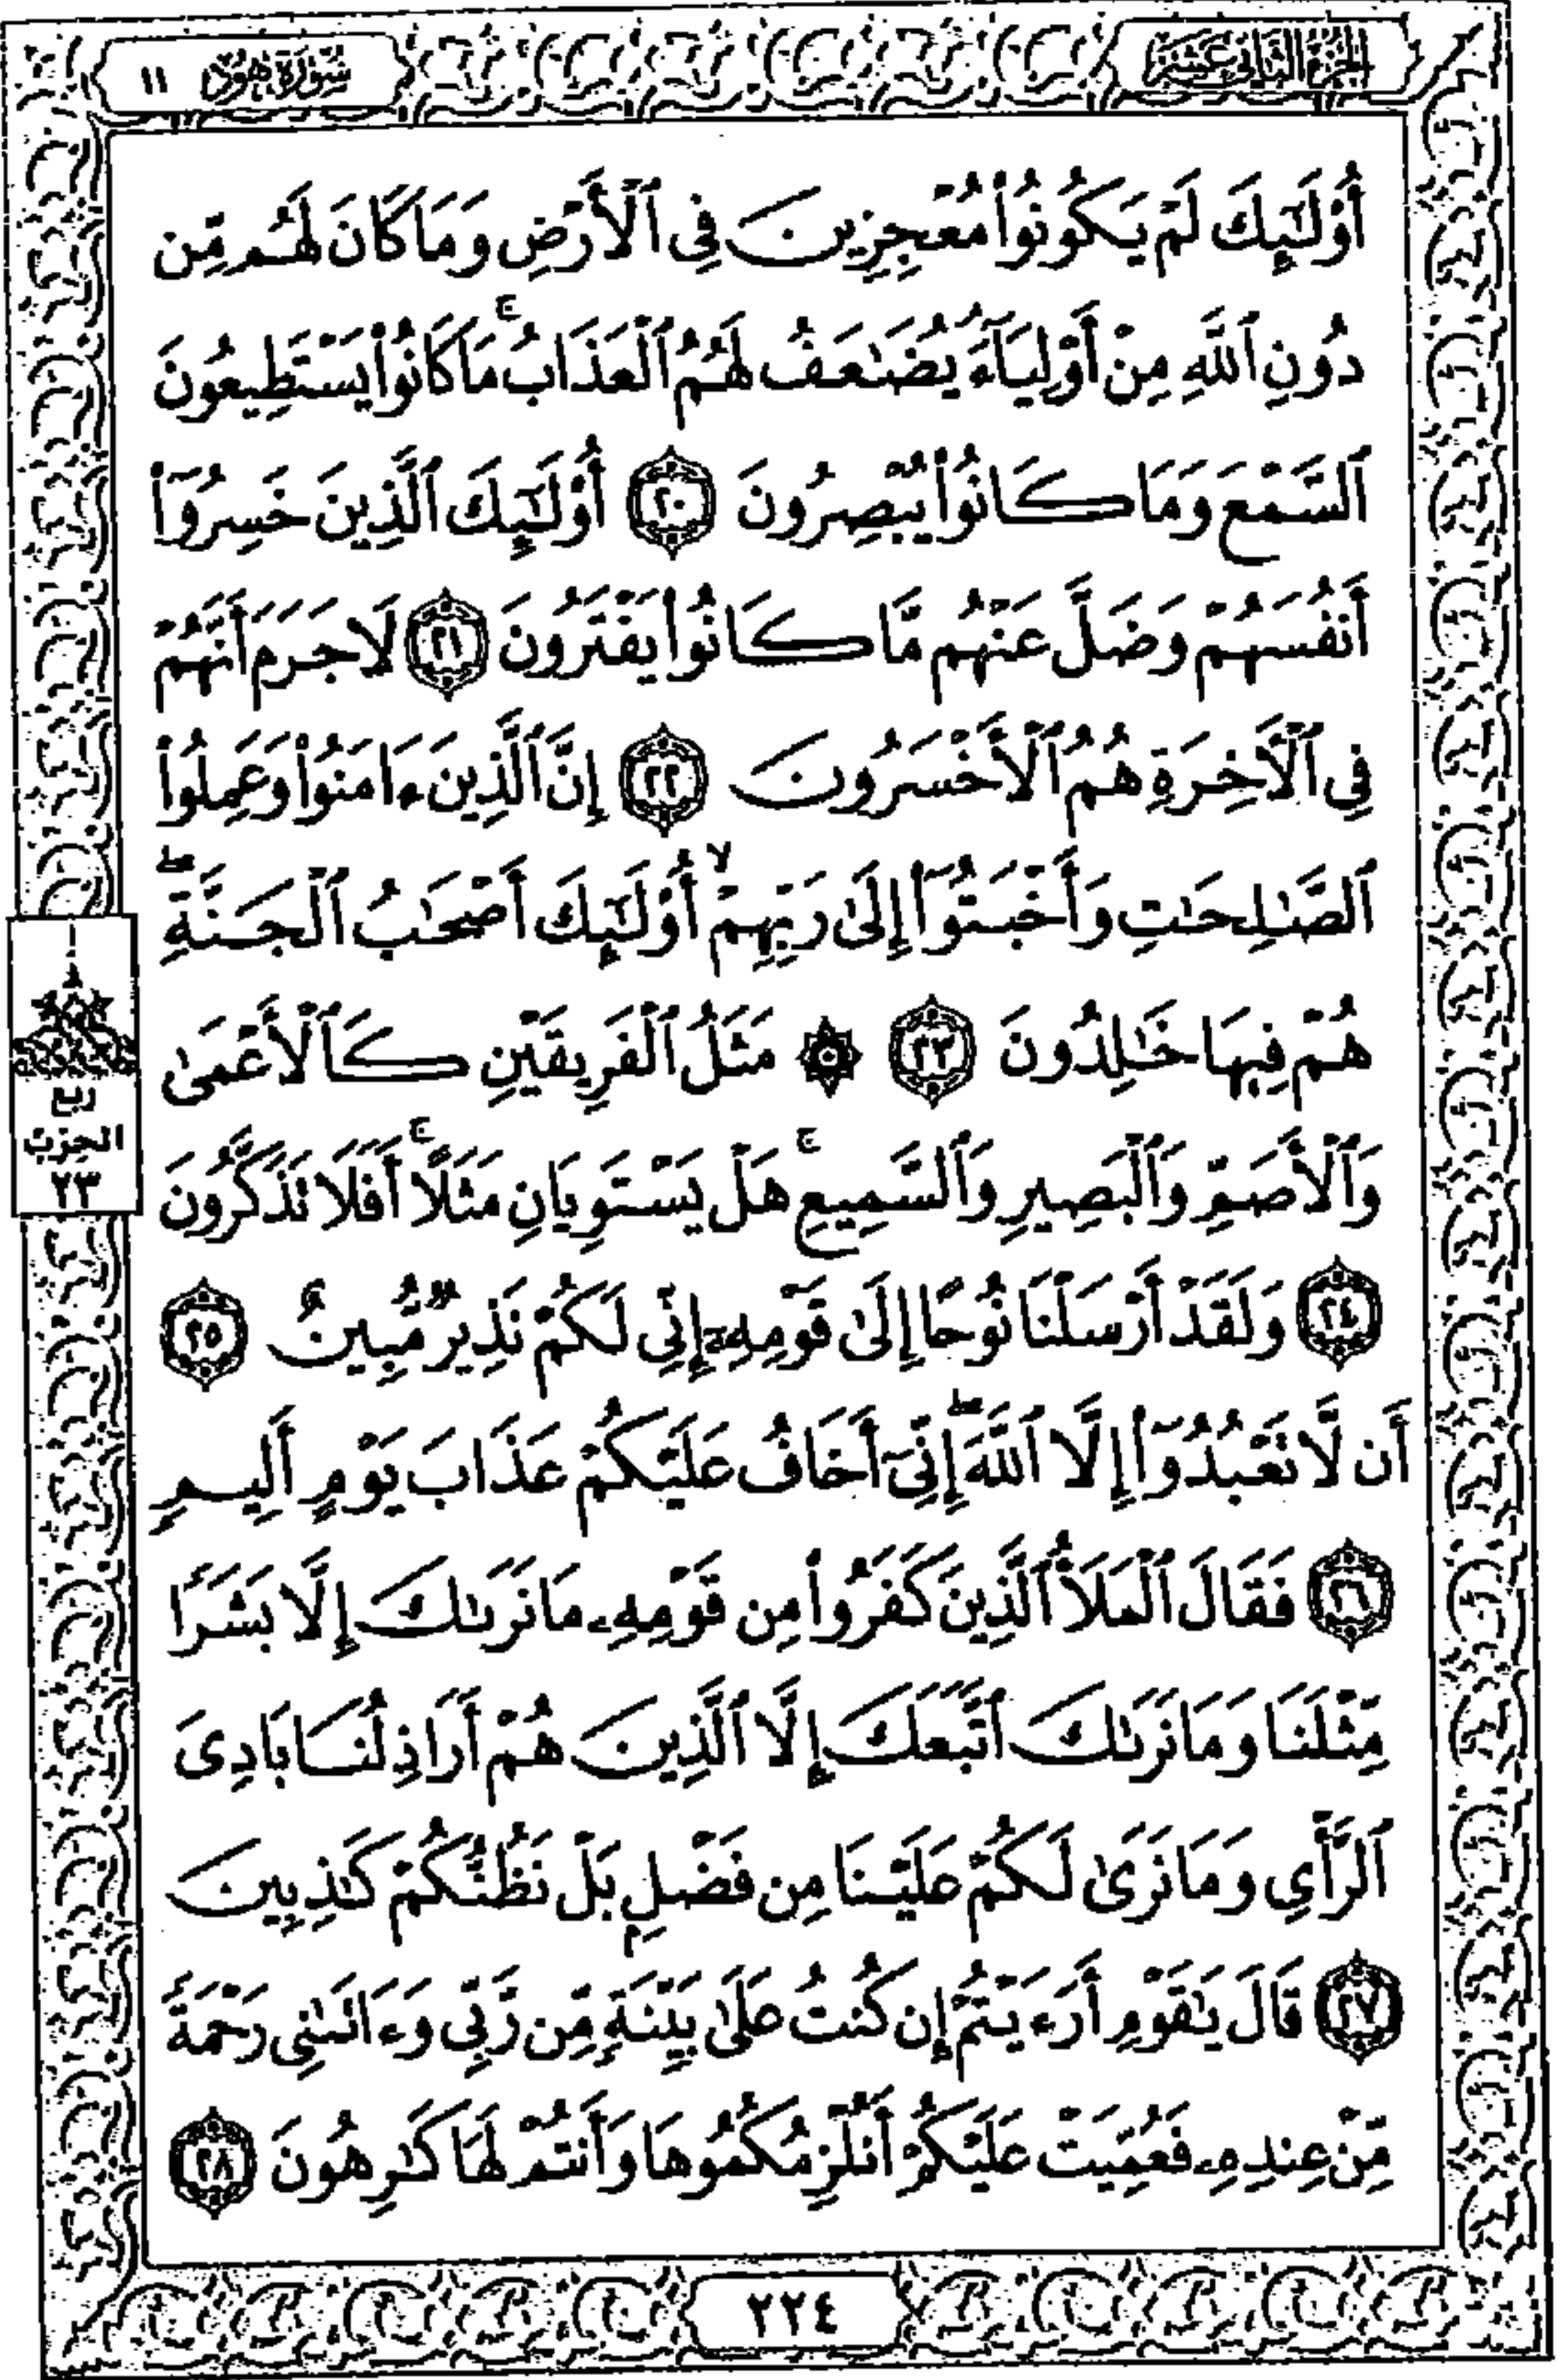 الجزء الثاني عشر
سورة هود ١١
أُوْلَٰٓئِكَ لَمْ يَكُونُوا۟ مُعْجِزِينَ فِى ٱلْأَرْضِ وَمَا كَانَ لَهُم مِّن
دُونِ ٱللَّهِ مِنْ أَوْلِيَآءَ ۘ يُضَٰعَفُ لَهُمُ ٱلْعَذَابُ ۚ مَا كَانُوا۟ يَسْتَطِيعُونَ
ٱلسَّمْعَ وَمَا كَانُوا۟ يُبْصِرُونَ ٢٠ أُوْلَٰٓئِكَ ٱلَّذِينَ خَسِرُوٓا۟
أَنفُسَهُمْ وَضَلَّ عَنْهُم مَّا كَانُوا۟ يَفْتَرُونَ ٢١ لَا جَرَمَ أَنَّهُمْ
فِى ٱلْأَخِرَةِ هُمُ ٱلْأَخْسَرُونَ ٢٢ إِنَّ ٱلَّذِينَ ءَامَنُوا۟ وَعَمِلُوا۟
ٱلصَّٰلِحَٰتِ وَأَخْبَتُوٓا۟ إِلَىٰ رَبِّهِمْ ۙ أُوْلَٰٓئِكَ أَصْحَٰبُ ٱلْجَنَّةِ ۖ
هُمْ فِيهَا خَٰلِدُونَ ٢٣ ۞ مَثَلُ ٱلْفَرِيقَيْنِ كَٱلْأَعْمَىٰ
وَٱلْأَصَمِّ وَٱلْبَصِيرِ وَٱلسَّمِيعِ ۚ هَلْ يَسْتَوِيَانِ مَثَلًا ۚ أَفَلَا تَذَكَّرُونَ
٢٤ وَلَقَدْ أَرْسَلْنَا نُوحًا إِلَىٰ قَوْمِهِۦٓ إِنِّى لَكُمْ نَذِيرٌ مُّبِينٌ ٢٥
أَن لَّا تَعْبُدُوٓا۟ إِلَّا ٱللَّهَ ۖ إِنِّىٓ أَخَافُ عَلَيْكُمْ عَذَابَ يَوْمٍ أَلِيمٍ
٢٦ فَقَالَ ٱلْمَلَأُ ٱلَّذِينَ كَفَرُوا۟ مِن قَوْمِهِۦ مَا نَرَىٰكَ إِلَّا بَشَرًا
مِّثْلَنَا وَمَا نَرَىٰكَ ٱتَّبَعَكَ إِلَّا ٱلَّذِينَ هُمْ أَرَاذِلُنَا بَادِىَ
ٱلرَّأْىِ وَمَا نَرَىٰ لَكُمْ عَلَيْنَا مِن فَضْلٍۭ بَلْ نَظُنُّكُمْ كَٰذِبِينَ
٢٧ قَالَ يَٰقَوْمِ أَرَءَيْتُمْ إِن كُنتُ عَلَىٰ بَيِّنَةٍ مِّن رَّبِّى وَءَاتَىٰنِى رَحْمَةً
مِّنْ عِندِهِۦ فَعُمِّيَتْ عَلَيْكُمْ أَنُلْزِمُكُمُوهَا وَأَنتُمْ لَهَا كَٰرِهُونَ ٢٨
ربع
الحزب
٢٣
٢٢٤